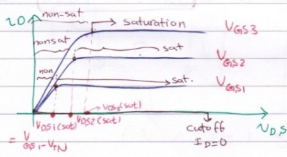 non-sat
iD
saturation
VGS3
nonsat
sat
VGS2
non
sat.
VGS1
VDS1(sat)
VDS2(sat)
VDS3(sat)
cutoff
ID=0
VDS
= VGS1-VTN